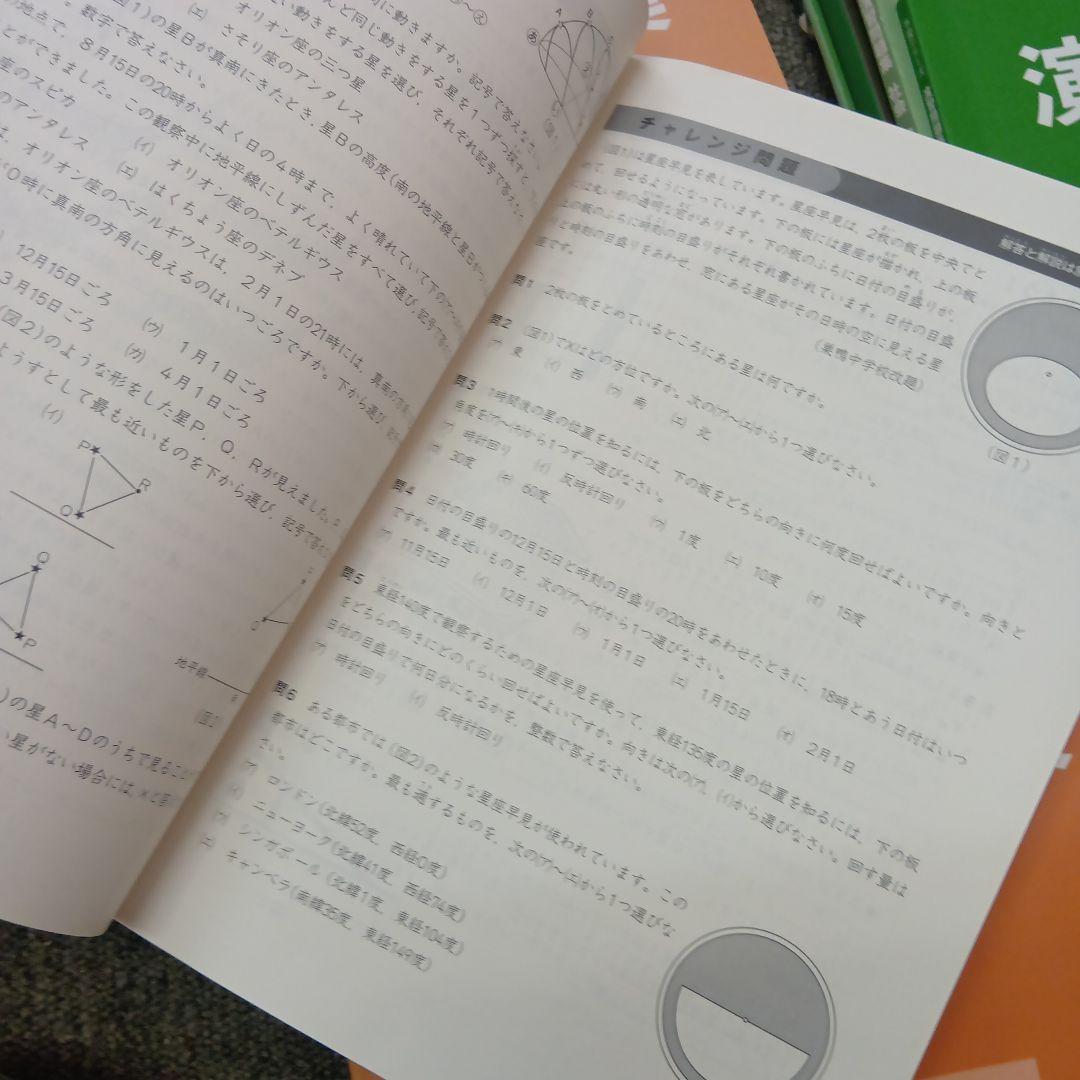 んど同じ動きをする星を1つずつ探すと、
い動きをする星を選び、それぞれ記号で答え
オリオン座の三つ星
(エ) さそり座のアンタレス
図1)の星Bが真南にきたとき、星Bの高度(南の地平線と星Bが
数字で答えなさい。
地点で、8月15日の20時からよく日の4時まで、よく晴れていて下の
とができました。この観察中に地平線にしずんだ星をすべて選び、記号で答
座のスピカ (イ) オリオン座のベテルギウス
のアンタレス (エ) はくちょう座のデネブ
オリオン座のベテルギウスは、2月1日の21時には、真南の方角
0時に真南の方角に見えるのはいつごろですか。下から選び
12月15日ごろ (ウ) 1月1日ごろ
3月15日ごろ (カ) 4月1日ごろ
(図2)のような形をした星P、Q、Rが見えました。
ようすとして最も近いものを下から選び、記号で答え
(イ)
A B
P R Q
Q P
地平線
)の星A〜Dのうちで見ること
い星がない場合には、×と答
チャレンジ問題
解答と解説は
(図1)は星座早見を表しています。星座早見は、2枚の板を中央でと
めて、回せるようになっています。下の板には星座が描かれ、上の板
には丸い形の透明な窓があります。下の板のふちに日付の目盛りが、
上の板のふちに時刻の目盛りがそれぞれ書かれています。日付の目盛
と時刻の目盛りをあわせ、窓にある星座がその日時の空に見える星
座です。 (巣鴨中学校改題)
(図1)
問1 2枚の板をとめているところにある星は何ですか。
問2 (図1)でXはどの方位ですか。次の(ア)〜(エ)から1つ選びなさい。
(ア) 東 (イ) 西 (ウ) 南 (エ) 北
問3 1時間後の星の位置を知るには、下の板をどちらの向きに何度回せばよいですか。向きと
角度を(ア)〜(カ)から1つずつ選びなさい。
(ア) 時計回り (イ) 反時計回り (ウ) 1度 (エ) 10度 (オ) 15度
(カ) 30度 (キ) 60度
問4 日付の目盛りの12月15日と時刻の目盛りの20時をあわせたときに、18時とあう日付はいつ
ですか。最も近いものを、次の(ア)〜(オ)から1つ選びなさい。
(ア) 11月15日 (イ) 12月1日 (ウ) 1月1日 (エ) 1月15日 (オ) 2月1日
問5 東経140度で観察するための星座早見を使って、東経135度の星の位置を知るには、下の板
をどちらの向きにどのくらい回せばよいですか。向きは次の(ア)、(イ)から選びなさい。回す量は
日付の目盛りで何日分になるかを、整数で答えなさい。
(ア) 時計回り (イ) 反時計回り
問6 ある都市では(図2)のような星座早見が使われています。この
都市はどこですか。最も適するものを、次の(ア)〜(エ)から1つ選びな
さい。
(ア) ロンドン(北緯52度、西経0度)
(イ) ニューヨーク(北緯41度、西経74度)
(ウ) シンガポール(北緯1度、東経104度)
(エ) チャンベラ(南緯35度、東経149度)
演